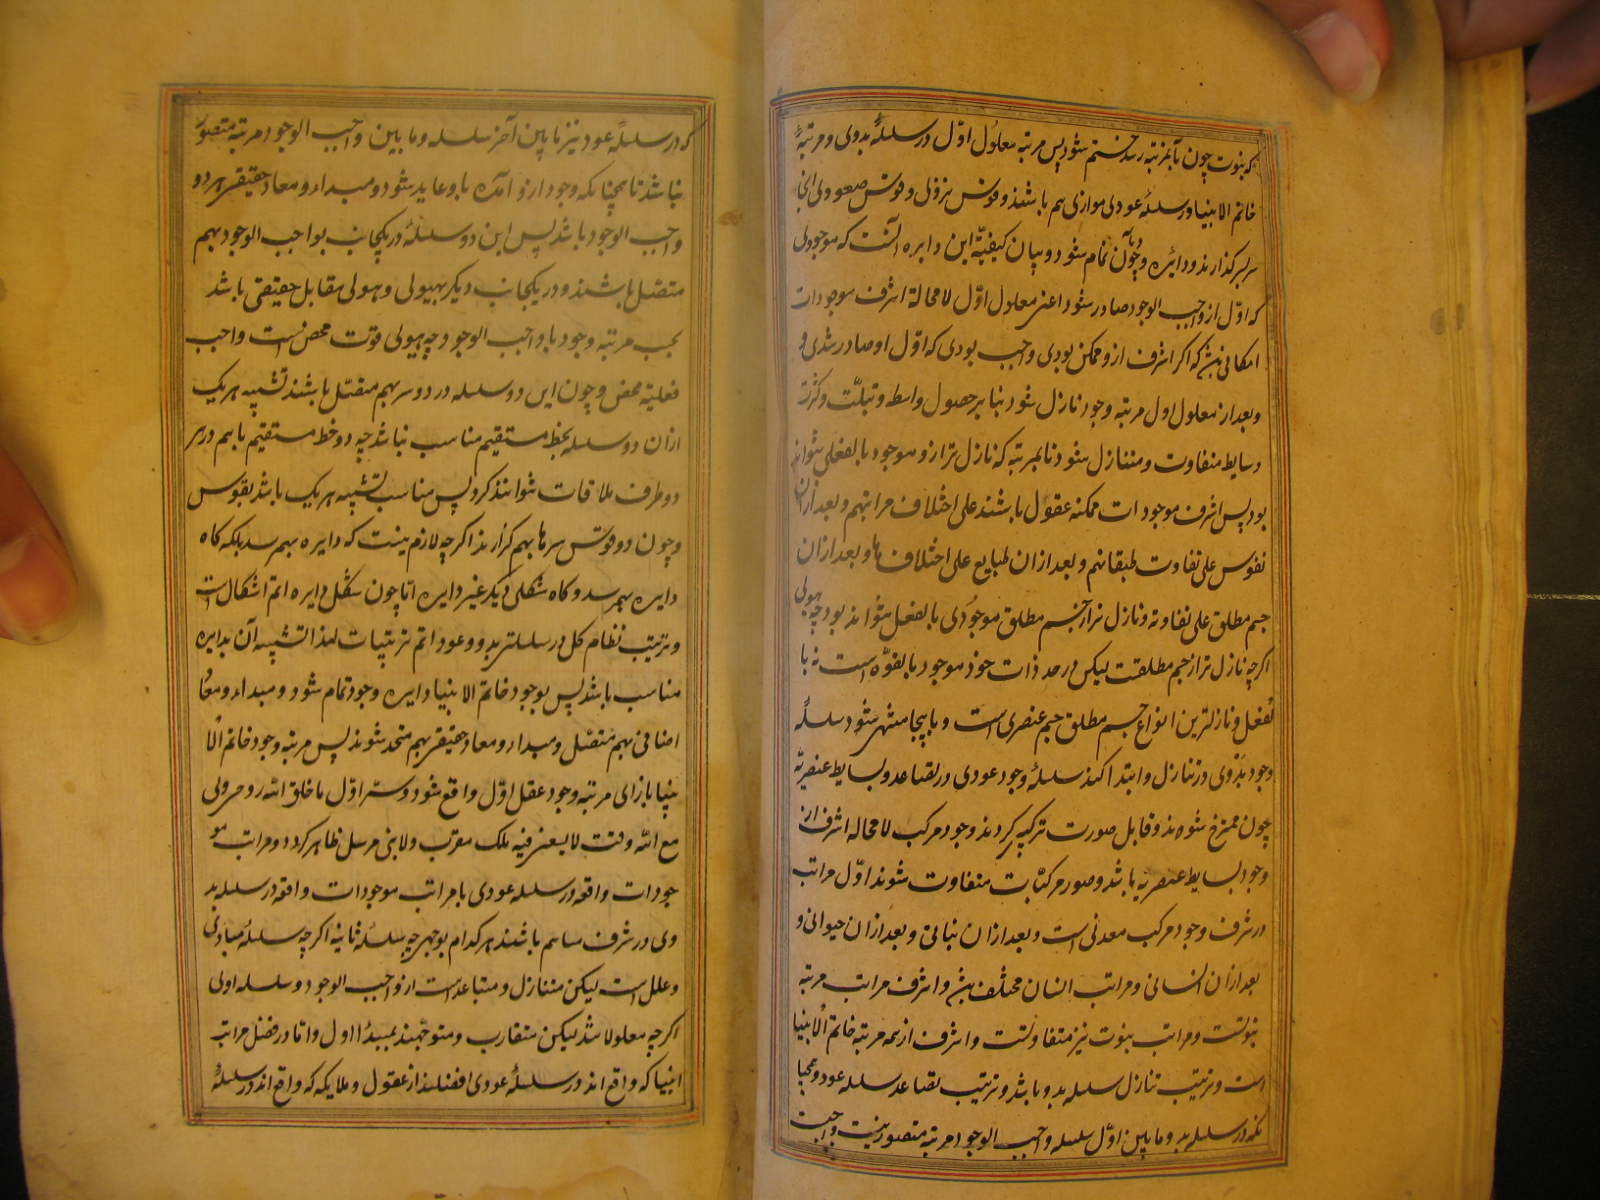 که نبوت چون بآنمرتبه رسد ختم شود پس مرتبه معلول اوّل در سلسلهٔ بدوی و مرتبهٔ
خاتم الانبیا در سلسلهٔ عودی موازی هم باشند و قوس نزولی و قوس صعودی
سر بسر گذارند و دایره وجود بآن تمام شود و بیان کیفیّة این دایره آنست که موجودی
که اوّل از واجب الوجود صادر شود اعنی معلول اوّل لامحالة اشرف موجودات
امکانی باشد که اگر اشرف ازو ممکن بودی واجب بودی که اوّل او صادر شدی و
و بعد از معلول اول مرتبه وجود نازل شود بنابر حصول واسطه و قبلّت و کثرت
وسایط متفاوت و متنازل شود تا بمرتبه که نازل تر ازو موجود بالفعلی نتواند
بود پس اشرف موجودات ممکنه عقول باشند علی اختلاف مراتبهم و بعد ازان
نفوس علی تفاوت طبقاتهم و بعد ازان طبایع علی اختلافها و بعد ازان
جسم مطلق علی تفاوته و نازل تر از جسم مطلق موجودی بالفعل نتواند بود چه هیولی
اگرچه نازل تر از جسم مطلقست لیکن در حد ذات خود موجود بالقوّه است نه با
لفعل و نازلترین انواع جسم مطلق جسم عنصری است و باینجا منتهی شود سلسلهٔ
وجود بدوی در تنازل و ابتدا کند سلسلهٔ وجود عودی در تصاعد و بسایط عنصریّه
چون ممتزج شوند و قابل صورت ترکیبی گردند وجود مرکب لامحاله اشرف از
وجود بسایط عنصریه باشد و صور مرکبّات متفاوت شوند اوّل مراتب
در شرف وجود مرکب معدنی است و بعد ازان نباتی و بعد ازان حیوانی و
بعد ازان انسانی و مراتب انسان مختلف باشد و اشرف مراتب مرتبه
نبوتست و مراتب نبوت نیز متفاوتست و اشرف از همه مرتبه خاتم الانبیا
است و ترتیب تنازل سلسله بدو باشد و ترتیب تصاعد سلسله عود و همچنا
نکه در سلسله بدو مابین اوّل سلسله و واجب الوجود مرتبه متصور نیست واجبست
که در سلسلهٔ عود نیز مابین آخر سلسله و مابین واجب الوجود مرتبه متصوّر
نباشد تا همچنانکه وجود ازو آمده باو عاید شود و مبداء و معاد حقیقی هر دو
واجب الوجود باشد پس این دو سلسلهٔ در یکجانب بواجب الوجود بهم
متصّل باشند و در یکجانب دیگر بهیولی و هیولی مقابل حقیقی باشد
بحسب مرتبه وجود با واجب الوجود چه هیولی قوّت محض است و واجب
فعلیة محض و چون این دو سلسله در دو سر بهم متصّل باشند تشبیه هر یک
ازان دو سلسله بخط مستقیم مناسب نباشد چه دو خط مستقیم باهم در هر
دو طرف ملاقات نتوانند کرد پس مناسب تشبیه هر یک باشد بقوس
و چون دو قوس سرها بهم گذارند اگرچه لازم نیست که دایره بهم رسد بلکه گاه
دایره بهم رسد و گاه شکلی دیگر غیر دایره امّا چون شکل دایره اتم اشکال است
و ترتیب نظام کل در سلسلتی بدو و عود اتم ترتیبات لهذا تشبیه آن بدایره
مناسب باشد پس بوجود خاتم الانبیا دایره وجود تمام شود و مبداء و معاد
اضافی بهم متصّل و مبداء و معاد حقیقی بهم متحد شوند پس مرتبه وجود خاتم الا
نبیا بازای مرتبه وجود عقل اوّل واقع شود و سرّ اوّل ما خلق اللّه روحی و لی
مع اللّه وقت لا یسعنی فیه ملک مقرب و لا نبی مرسل ظاهر گردد و مراتب مو
جودات واقعه در سلسله عودی با مراتب موجودات واقعه در سلسله بد
وی در شرف مساهم باشند هر کدام بوجهی چه سلسلهٔ ثانیه اگرچه سلسلهٔ مبادی
و علل است لیکن متنازل و متباعد است از واجب الوجود و سلسله اولی
اگرچه معلولاتند لیکن متقارب و متوجّهند بمبدأ اول و امّا در فضل مراتب
انبیا که واقع اند در سلسلهٔ عودی افضلند از عقول و ملایکه که واقع اند در سلسلهٔ